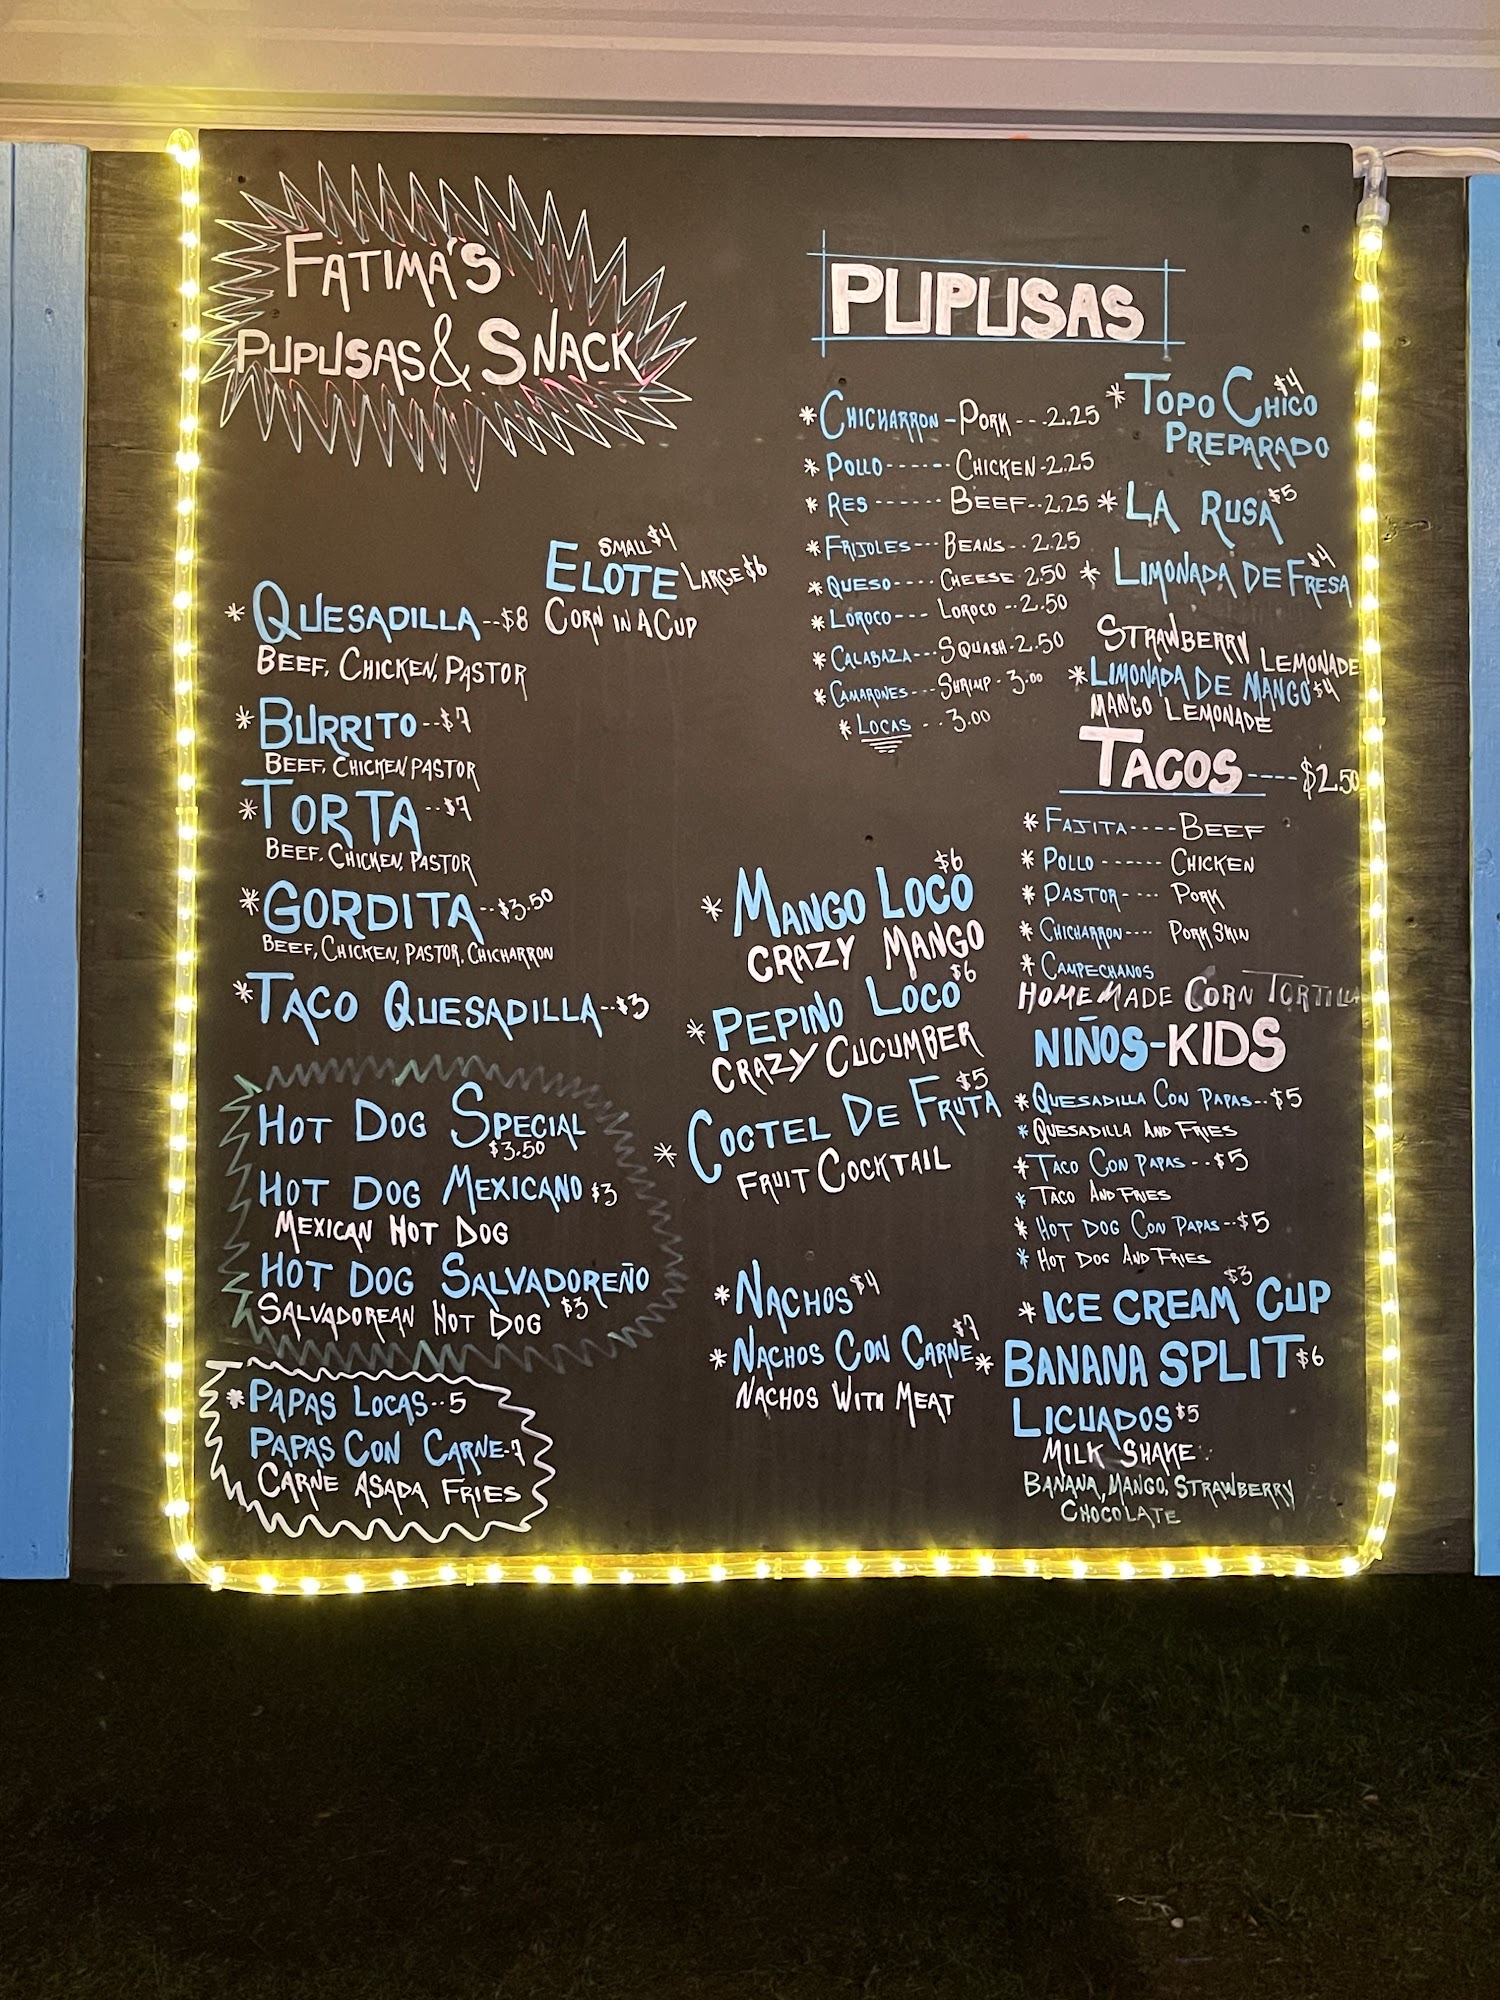 FATIMA'S
PUPUSAS & SNACK
SMALL $4
ELOTE LARGE $6
CORN IN A CUP
* QUESADILLA--$8
BEEF, CHICKEN, PASTOR
* BURRITO--$7
BEEF, CHICKEN PASTOR
* TORTA--$7
BEEF, CHICKEN, PASTOR
* GORDITA--$3.50
BEEF, CHICKEN, PASTOR, CHICHARRON
* TACO QUESADILLA--$3
HOT DOG SPECIAL
$3.50
HOT DOG MEXICANO $3
MEXICAN HOT DOG
HOT DOG SALVADOREÑO
SALVADOREAN HOT DOG $3
* PAPAS LOCAS--5
PAPAS CON CARNE-7
CARNE ASADA FRIES
$6
* MANGO LOCO
CRAZY MANGO
* PEPINO LOCO $6
CRAZY CUCUMBER
$5
* COCTEL DE FRUTA
FRUIT COCKTAIL
* NACHOS $4
* NACHOS CON CARNE $7
NACHOS WITH MEAT
PUPUSAS
* CHICHARRON-PORK---2.25
* POLLO------CHICKEN-2.25
* RES-------BEEF--2.25
* FRIJOLES---BEANS--2.25
* QUESO----CHEESE 2.50
* LOROCO---LOROCO--2.50
* CALABAZA---SQUASH-2.50
* CAMARONES---SHRIMP-3.00
* LOCAS--3.00
* TOPO CHICO $4
PREPARADO
* LA RUSA $5
* LIMONADA DE FRESA $4
STRAWBERRY LEMONADE
* LIMONADA DE MANGO $4
MANGO LEMONADE
TACOS----$2.50
* FAJITA----BEEF
* POLLO------CHICKEN
* PASTOR----PORK
* CHICHARRON----PORK SKIN
* CAMPECHANOS
HOMEMADE CORN TORTILLA
NIÑOS-KIDS
* QUESADILLA CON PAPAS--$5
* QUESADILLA AND FRIES
* TACO CON PAPAS--$5
* TACO AND FRIES
* HOT DOG CON PAPAS--$5
* HOT DOG AND FRIES
$3
* ICE CREAM CUP
* BANANA SPLIT $6
LICUADOS $5
MILK SHAKE:
BANANA, MANGO, STRAWBERRY
CHOCOLATE